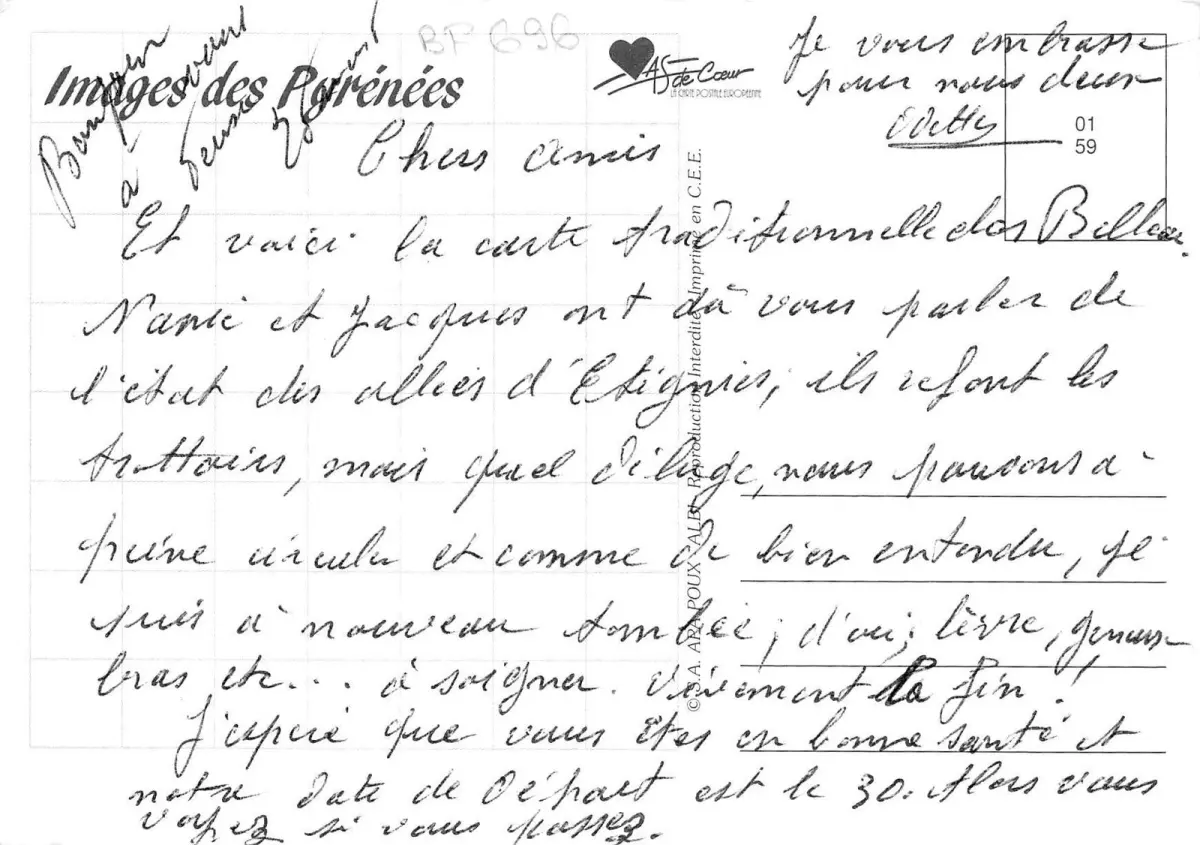 BF 696
Images des Pyrénées
AS de Cœur
LA CARTE POSTALE EUROPÉENNE
01
59
© S.A. APA-POUX ALBI - Reproduction Interdite - Imprimé en C.E.E.
Chers amis
Et voici la carte traditionnelle des
Nanie et Jacques ont dû vous parler de
l'état des allées d'Etignies, ils refont les
trottoirs, mais quel déluge, nous pouvons à
peine circuler et comme de bien entendu, je
suis à nouveau tombée ; d'où ; lèvre, genoux
bras etc... à soigner. Vivement la fin !
J'espère que vous êtes en bonne santé et
notre date de départ est le 30. Alors vous
voyez si vous passez.
Je vous embrasse
pour nous deux
Odette